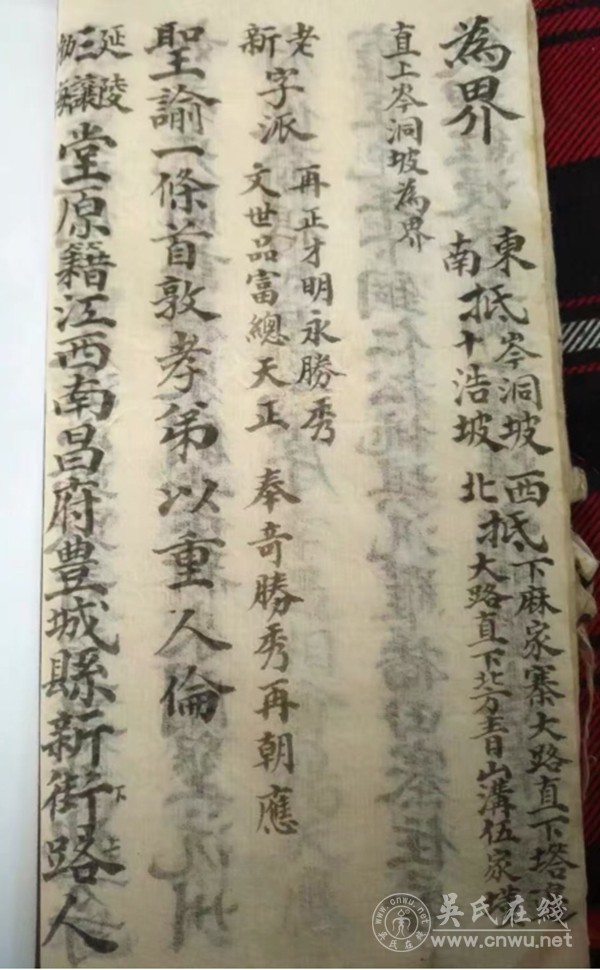 為界
東抵岑洞坡
南 十浩坡
西抵下麻家寨大路直下塔
北 大路直下北方青山溝伍家
直上岑洞坡為界
老 再正才明永勝秀
新字派 文世品富總天正 奉奇勝秀再朝應
聖諭一條首敦孝弟以重人倫
延陵
三讓
堂原籍江西南昌府豊城縣新街路人
下 上
吳氏在綫
www.cnwu.net